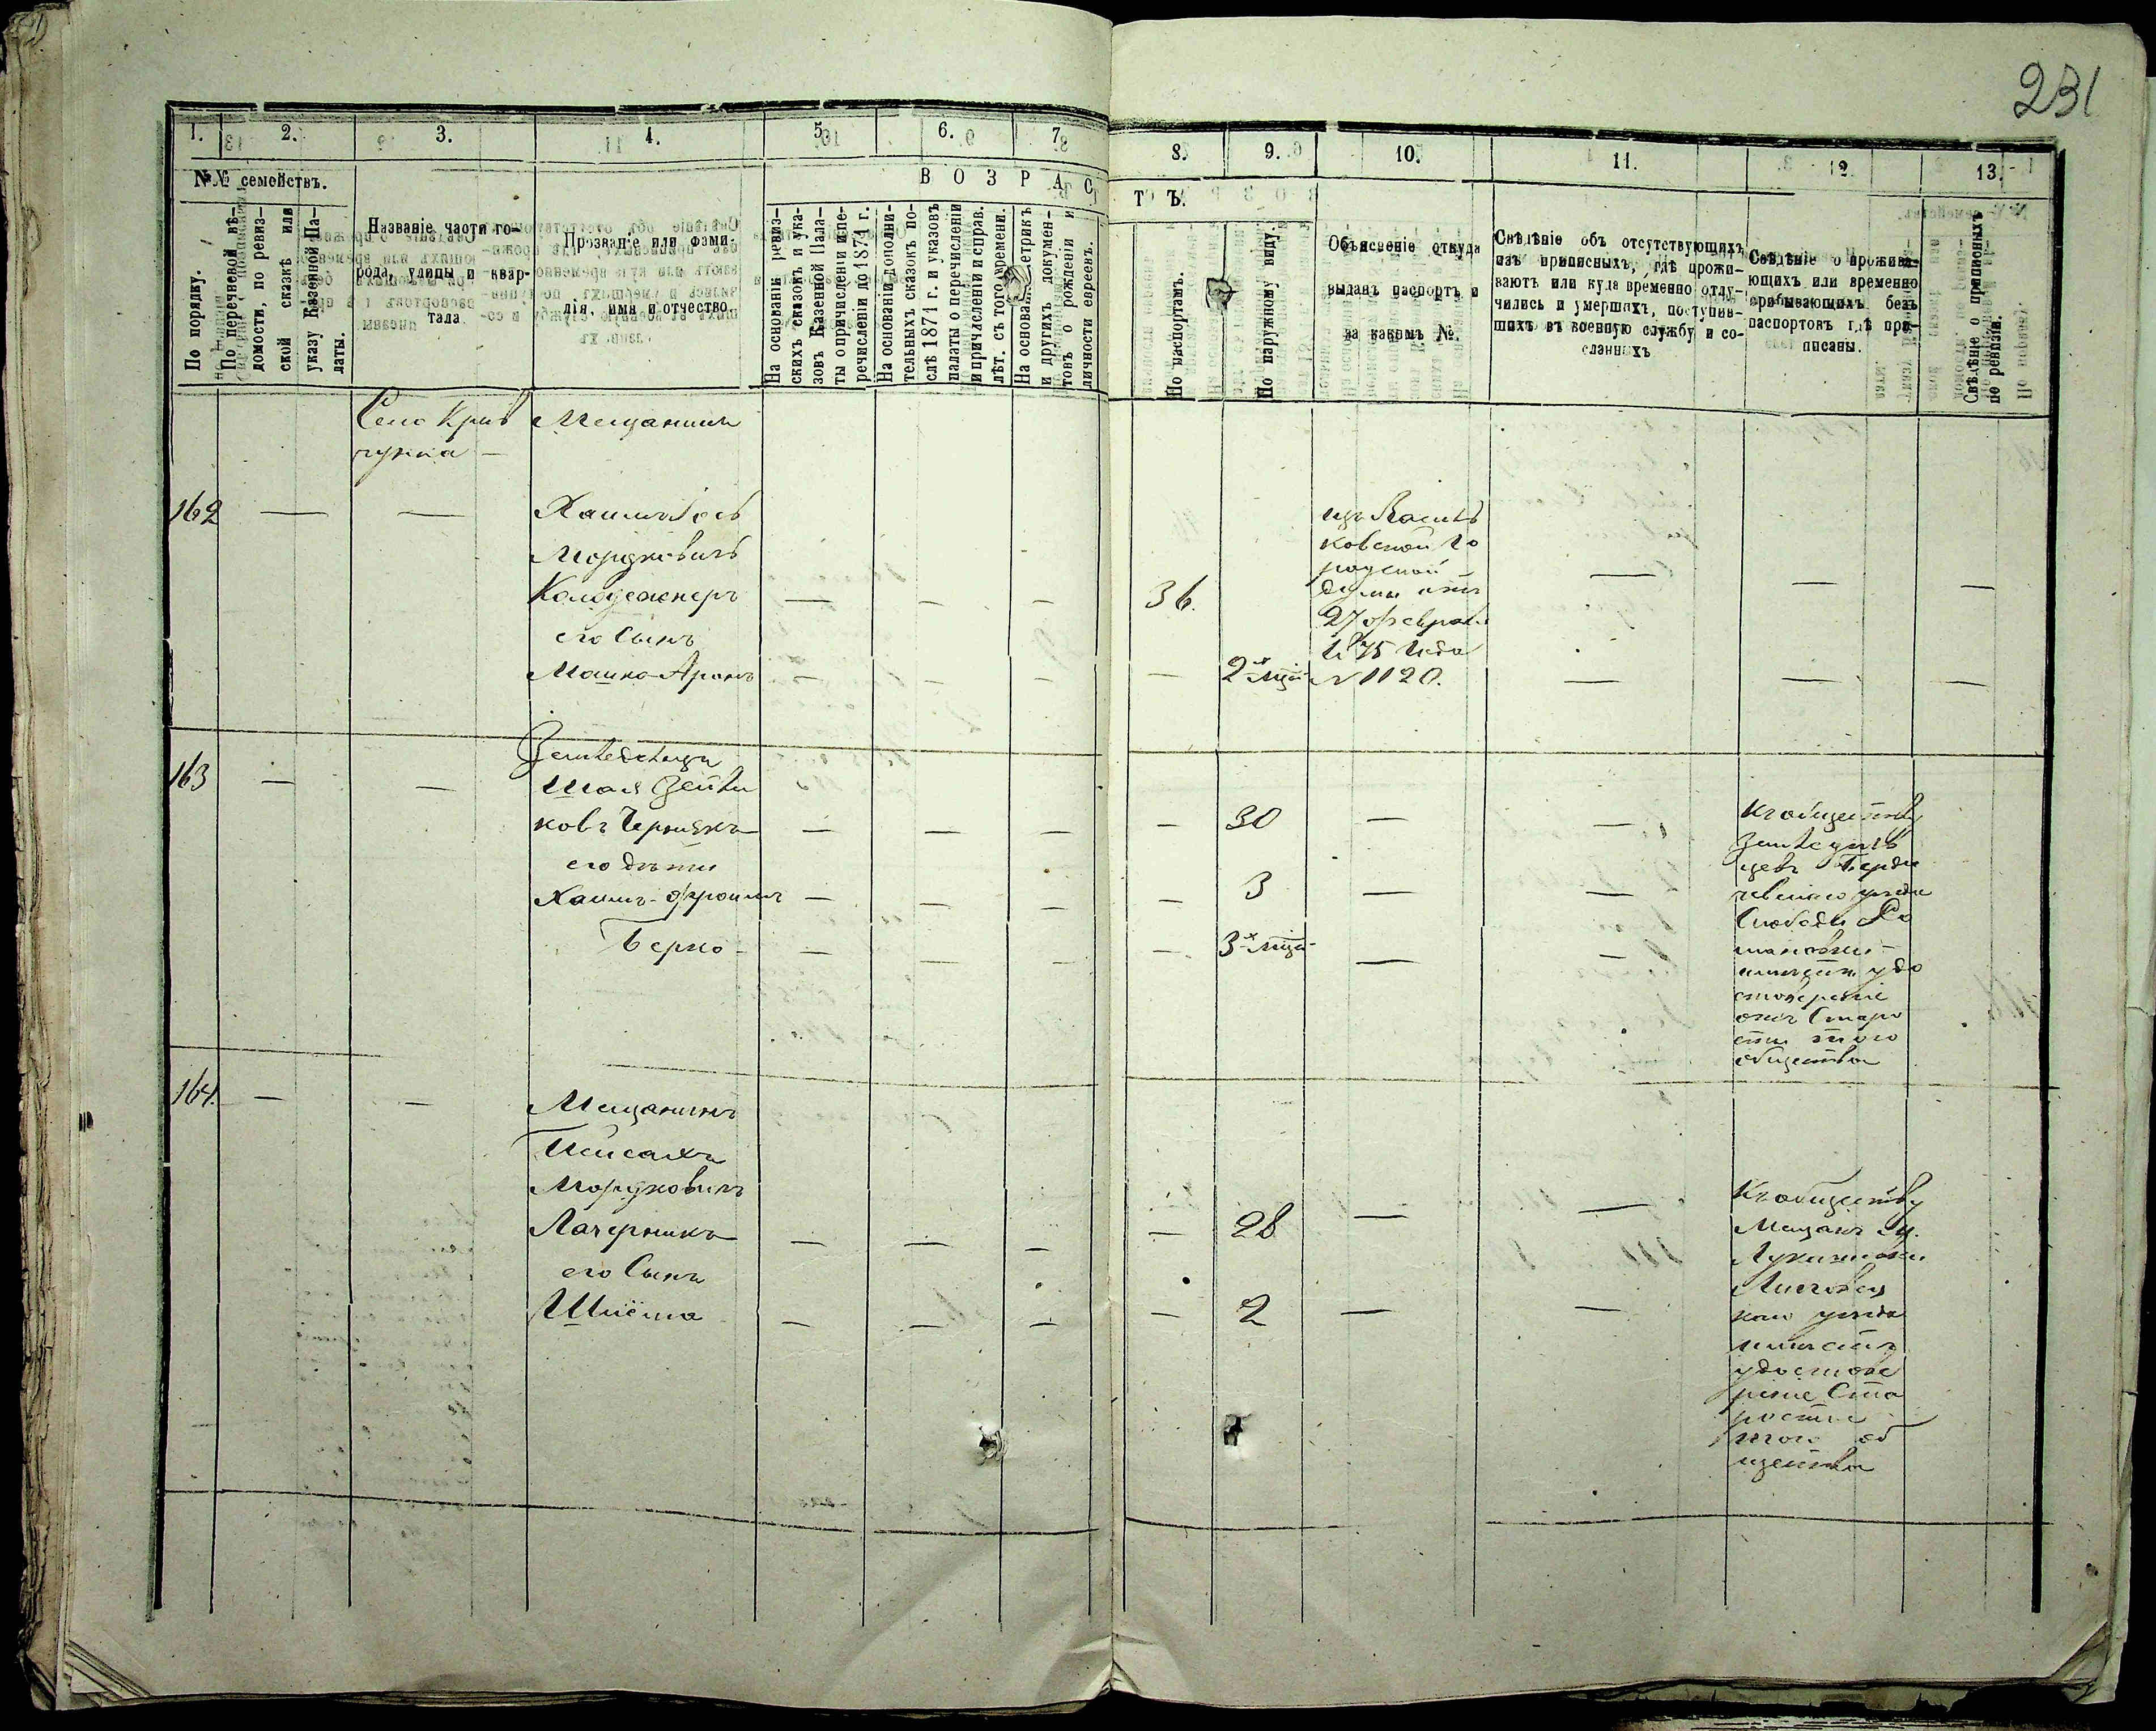 231
1. 2. 3. 4. 5. 6. 7. 8. 9. 10. 11. 12. 13.
№№ семействъ.
По порядку.
По перечневой вѣ-
домости, по ревиз-
ской сказкѣ или
указу Казенной Па-
латы.
Названіе части го-
рода, улицы и квар-
тала
Прозваніе или фами-
лія, имя и отчество.
ВОЗРАСТЪ.
На основаніи ревиз-
скихъ сказокъ и ука-
зовъ Казенной Пала-
ты о причисленіи и пе-
речисленіи до 1871 г.
На основаніи дополни-
тельныхъ сказокъ по-
слѣ 1871 г. и указовъ
палаты о перечисленіи
и причисленіи и справ.
лѣт. съ того времени.
На основаніи метрикъ
и другихъ докумен-
товъ о рожденіи и
личности евреевъ.
По паспортамъ.
По наружному виду.
Объясненіе откуда
выданъ паспортъ и
за какимъ №.
Свѣдѣніе объ отсутствующихъ
изъ приписныхъ, гдѣ прожи-
ваютъ или куда временно отлу-
чились и умершихъ, поступив-
шихъ въ военную службу и со-
сланныхъ
Свѣдѣніе о прожива-
ющихъ или временно
пребывающихъ безъ
паспортовъ гдѣ при-
писаны.
Свѣдѣніе о приписныхъ
по ревизіи.
Село Крив
чунка —
Мещанинъ
162 — —
Хаимъ Іосъ
Мордковичъ
Колодезнеръ — — — 36. — — —
его Сынъ
Мошко-Аронъ — — — — 2х мцъ — — —
изъ Василь
ковской Го
родской
думы отъ
27 феврал.
1875 года
№ 1120.
163 — —
Земледѣлецъ
Шая Зейли
ковъ Чернякъ — — — — 30 — —
его дѣти
Хаимъ-Фроимъ — — — — 3 — —
Берко — — — — — 3х мца — —
Къ обществу
Земледѣль
цевъ Берди
чевскаго уѣзда
Слободы Ро
мановки
имѣетъ удо
стовереніе
отъ Старо
сты того
общества
164. — —
Мещанинъ
Пейсахъ
Мордковичъ
Лачерникъ — — — — 28 — —
его Сынъ
Шлёма — — — — 2 — —
Къ обществу
Мещанъ м.
Лукашовки
Липовец
каго уѣзда
имѣетъ
удостове
реніе Ста
росты
того об
щества